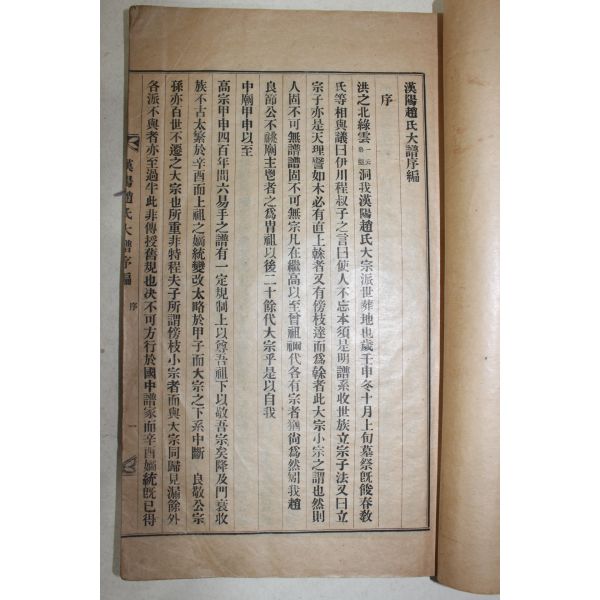 漢陽趙氏大譜序編
序
洪之北綠雲洞我漢陽趙氏大宗派世葬地也歲壬申冬十月上旬墓祭旣餕春敎
氏等相與議曰伊川程叔子之言曰使人不忘本須是明譜系收世族立宗子法又曰立
宗子亦是天理譬如木必有直上榦者又有傍枝達而爲榦者此大宗小宗之謂也然則
人固不可無譜譜固不可無宗凡在繼高以至曾祖禰代各有宗者猶尙爲然矧我趙
良節公不祧廟主鬯者之爲冑祖以後二十餘代大宗乎是以自我
中廟甲申以至
高宗甲申四百年間六易手之譜有一定規制上以尊吾祖下以敬吾宗矣降及門衰收
族不古太繁於辛酉而上祖之嫡統變改太略於甲子而大宗之下系中斷 良敬公宗
孫亦百世不遷之大宗也所重非特程夫子所謂傍枝小宗者而與大宗同歸見漏餘外
各派不與者亦至過半此非傳授舊規也决不可方行於國中譜家而辛酉嫡統旣已得
漢陽趙氏大譜序編 序 一